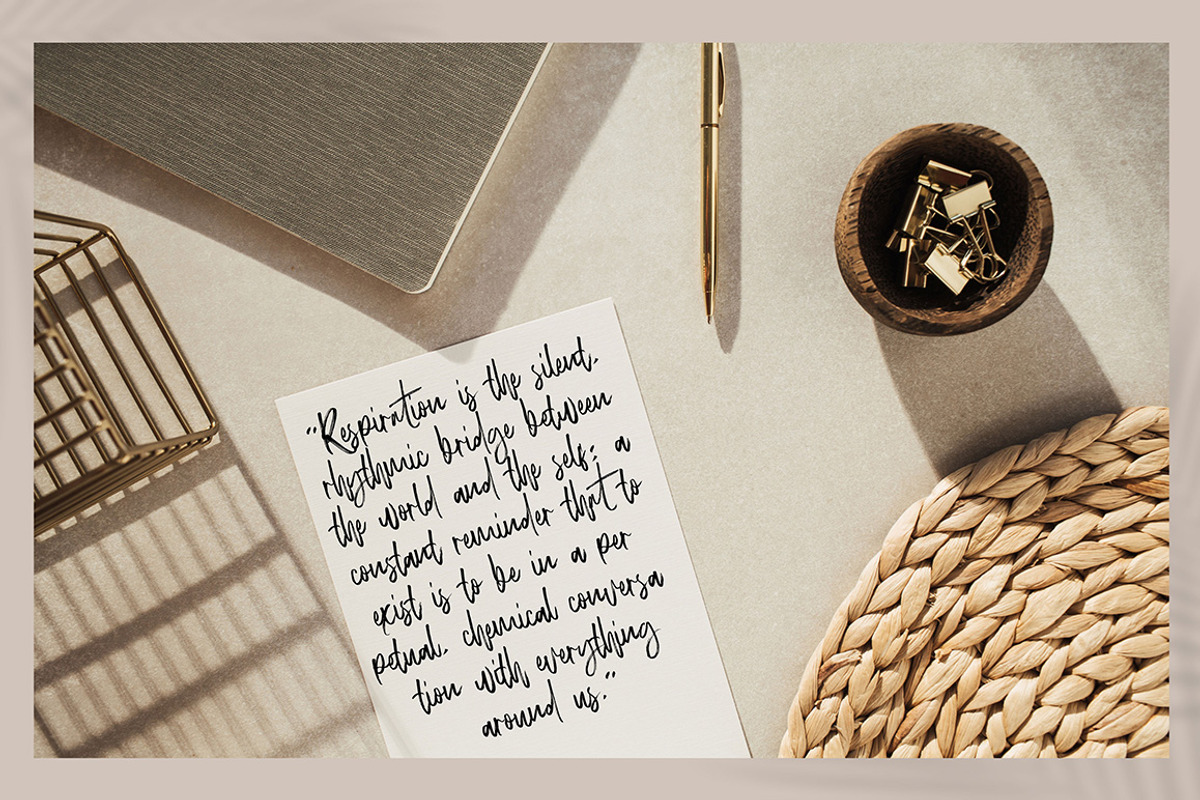 "Respiration is the silent,
rhythmic bridge between
the world and the self; a
constant reminder that to
exist is to be in a per
petual, chemical conversa
tion with everything
around us."